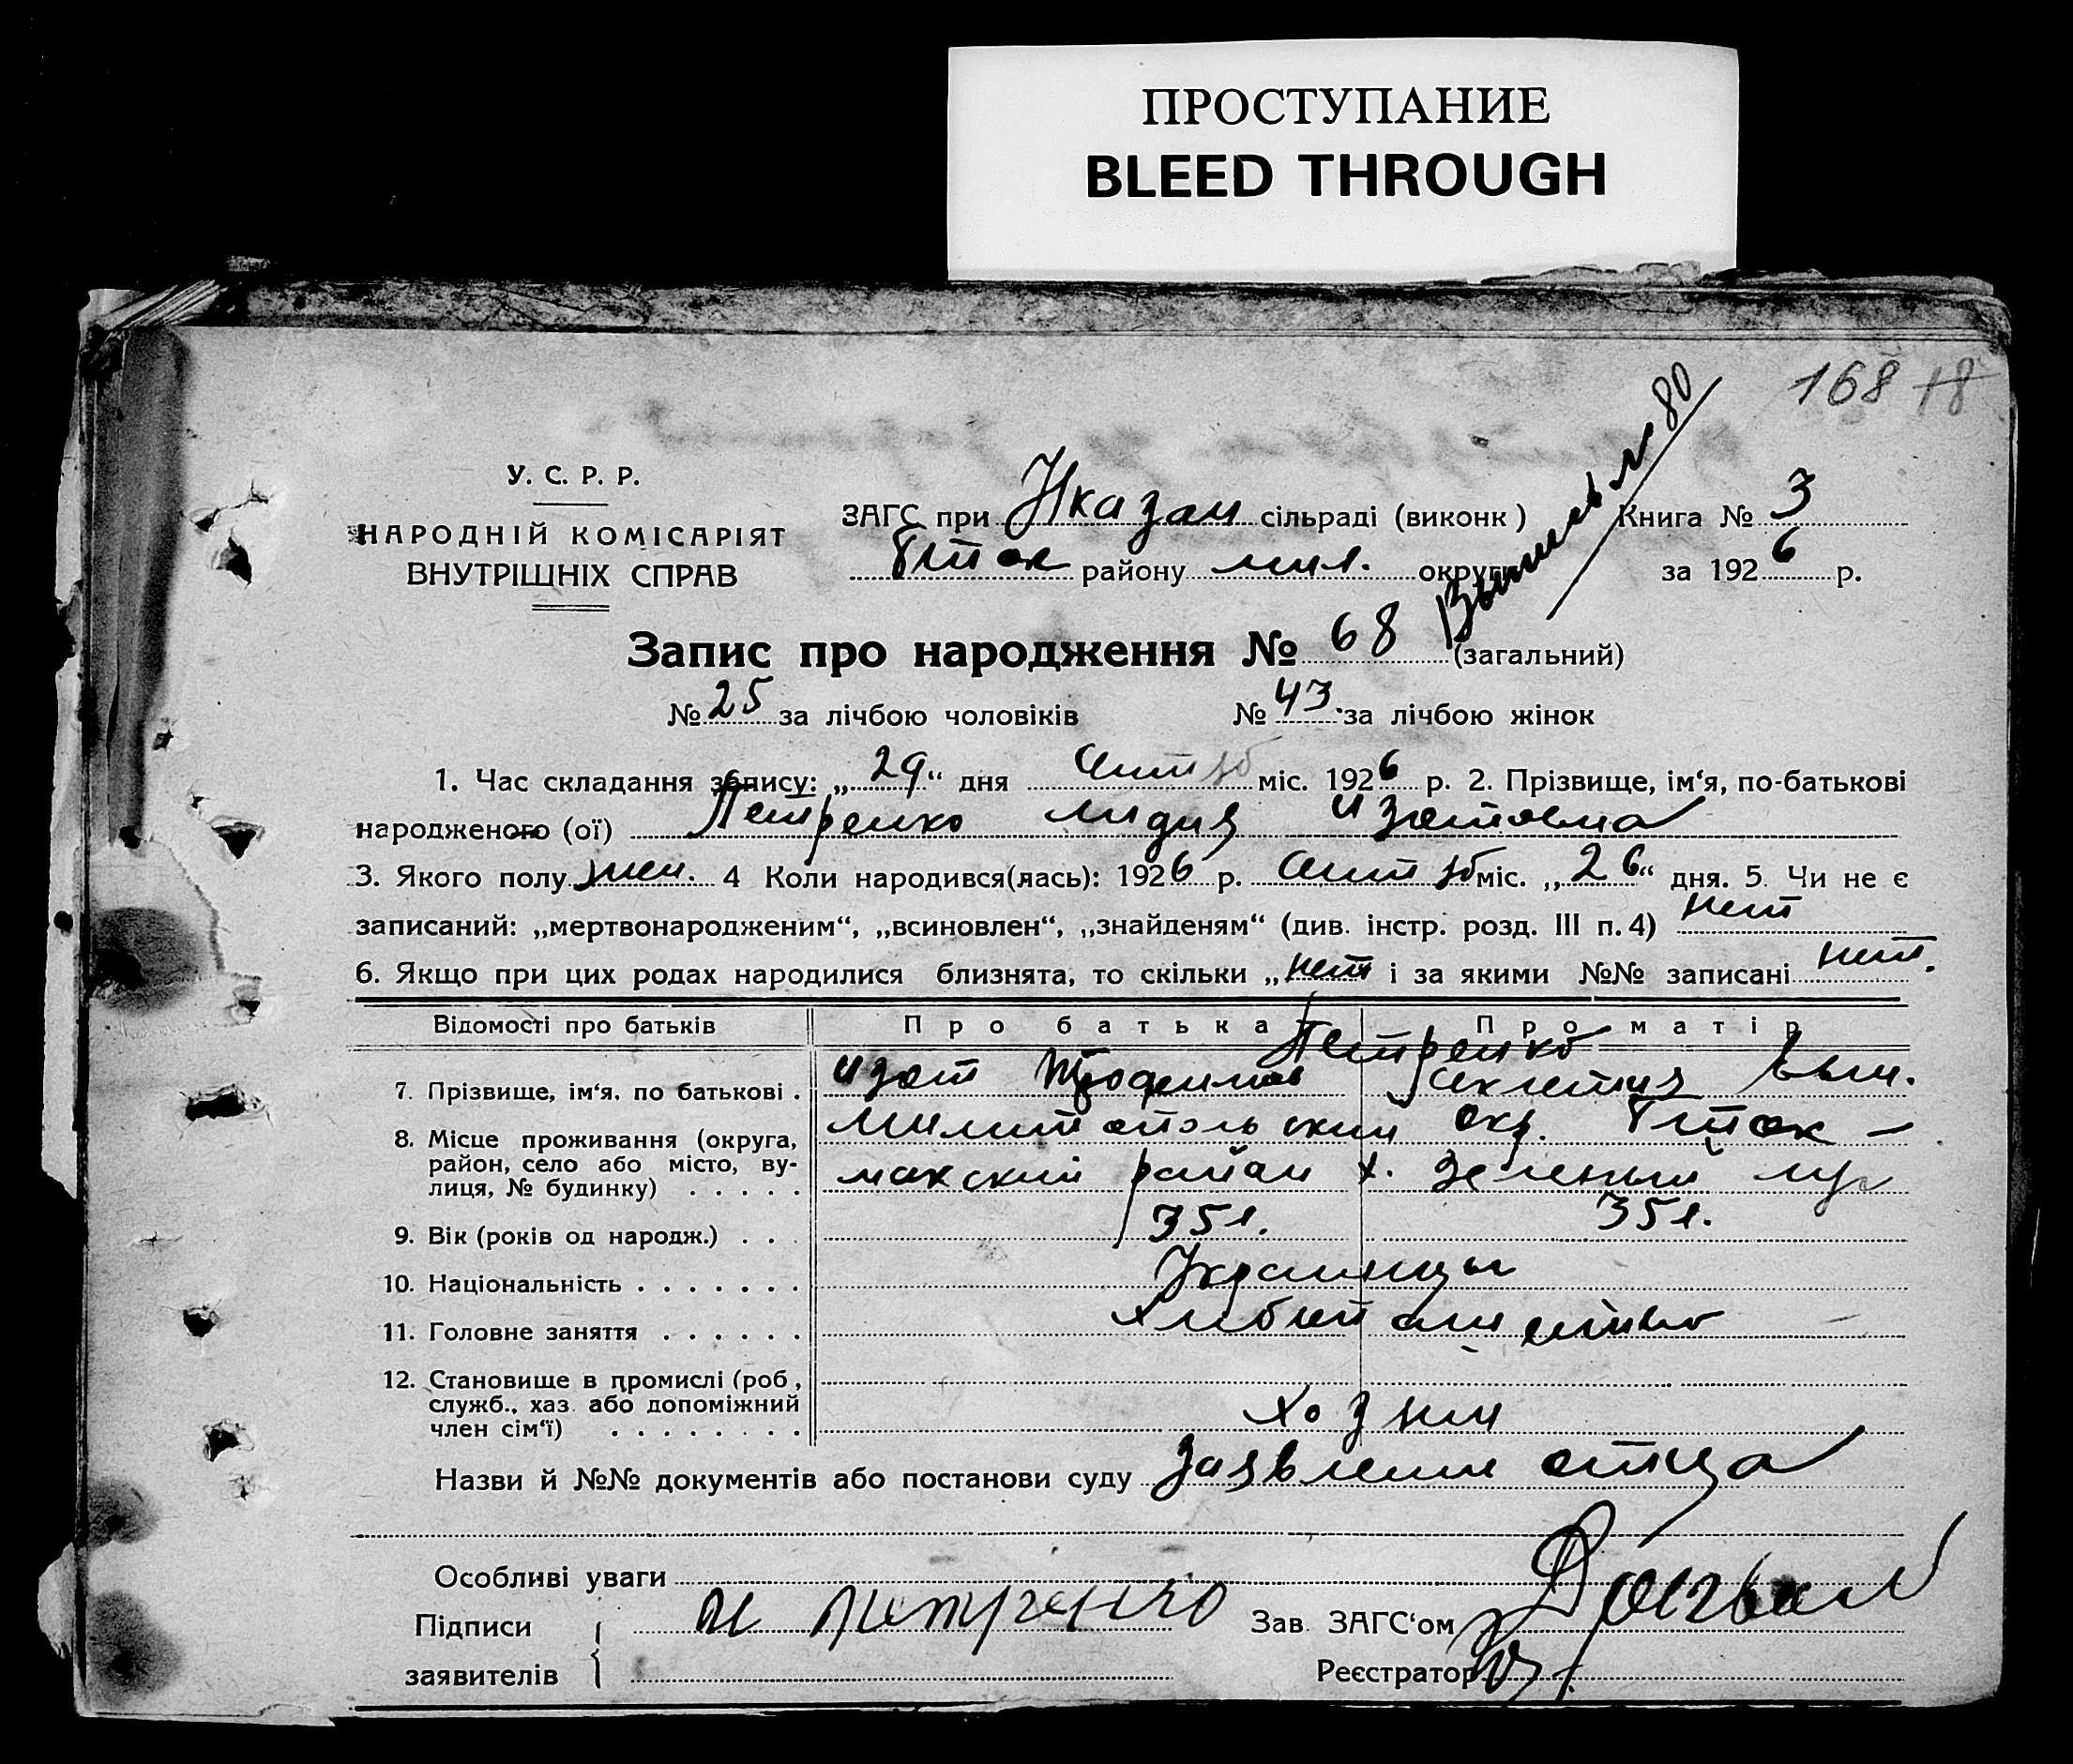 ПРОСТУПАНИЕ
BLEED THROUGH
168 18
У. С. Р. Р.
НАРОДНІЙ КОМІСАРІЯТ
ВНУТРІШНІХ СПРАВ
ЗАГС при сільраді (виконк)
району мил. округи
Книга № 3
за 1926 р.
80
Запис про народження № 68 (загальний)
№ 25 за лічбою чоловіків № 43 за лічбою жінок
1. Час складання запису: „29“ дня міс. 1926 р. 2. Прізвище, ім‘я, по-батькові
народженого (ої) Петренко Лидия Изотовна
3. Якого полу жен. 4 Коли народився(лась): 1926 р. міс. „26“ дня. 5. Чи не є
записаний: „мертвонародженим“, „всиновлен“, „знайденям“ (див. інстр. розд. III п. 4) нет
6. Якщо при цих родах народилися близнята, то скільки „нет і за якими №№ записані нет.
Відомості про батьків Про батька Про матір
Петренко
7. Прізвище, ім‘я, по батькові . Изот
8. Місце проживання (округа, окр.
район, село або місто, ву- район х. Зеленый луг
лиця, № будинку) . . . . .
9. Вік (років од народж.) . . . 35 л. 35 л.
10. Національність . . . . . . . Украинцы
11. Головне заняття . . . . . .
12. Становище в промислі (роб,
служб., хаз. або допоміжний
член сім‘ї) . . . . . . . .
Назви й №№ документів або постанови суду отца
Особливі уваги
Підписи и петренко Зав. ЗАГС‘ом
заявителів Реєстратор